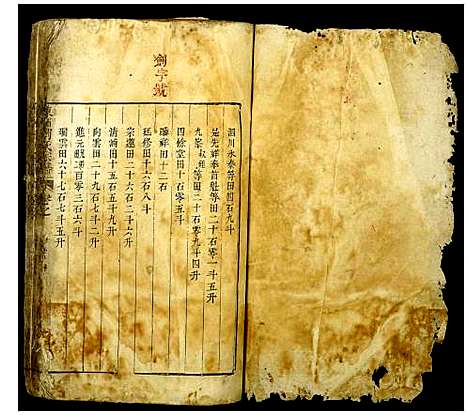 劍字號
泗川永泰等田四石九斗
是先祥奉首魁等田二十石零一斗五升
九峯叔姪等田二十石零九斗四升
四餘堂田十石零五斗
祥田十二石
廷修田十六石八斗
宗還田二十六石二斗六升
清浦田十五石五斗九升
向雲田二十九石七斗二升
進元田一百零三石六斗
瑞雲田六十七石七斗五升